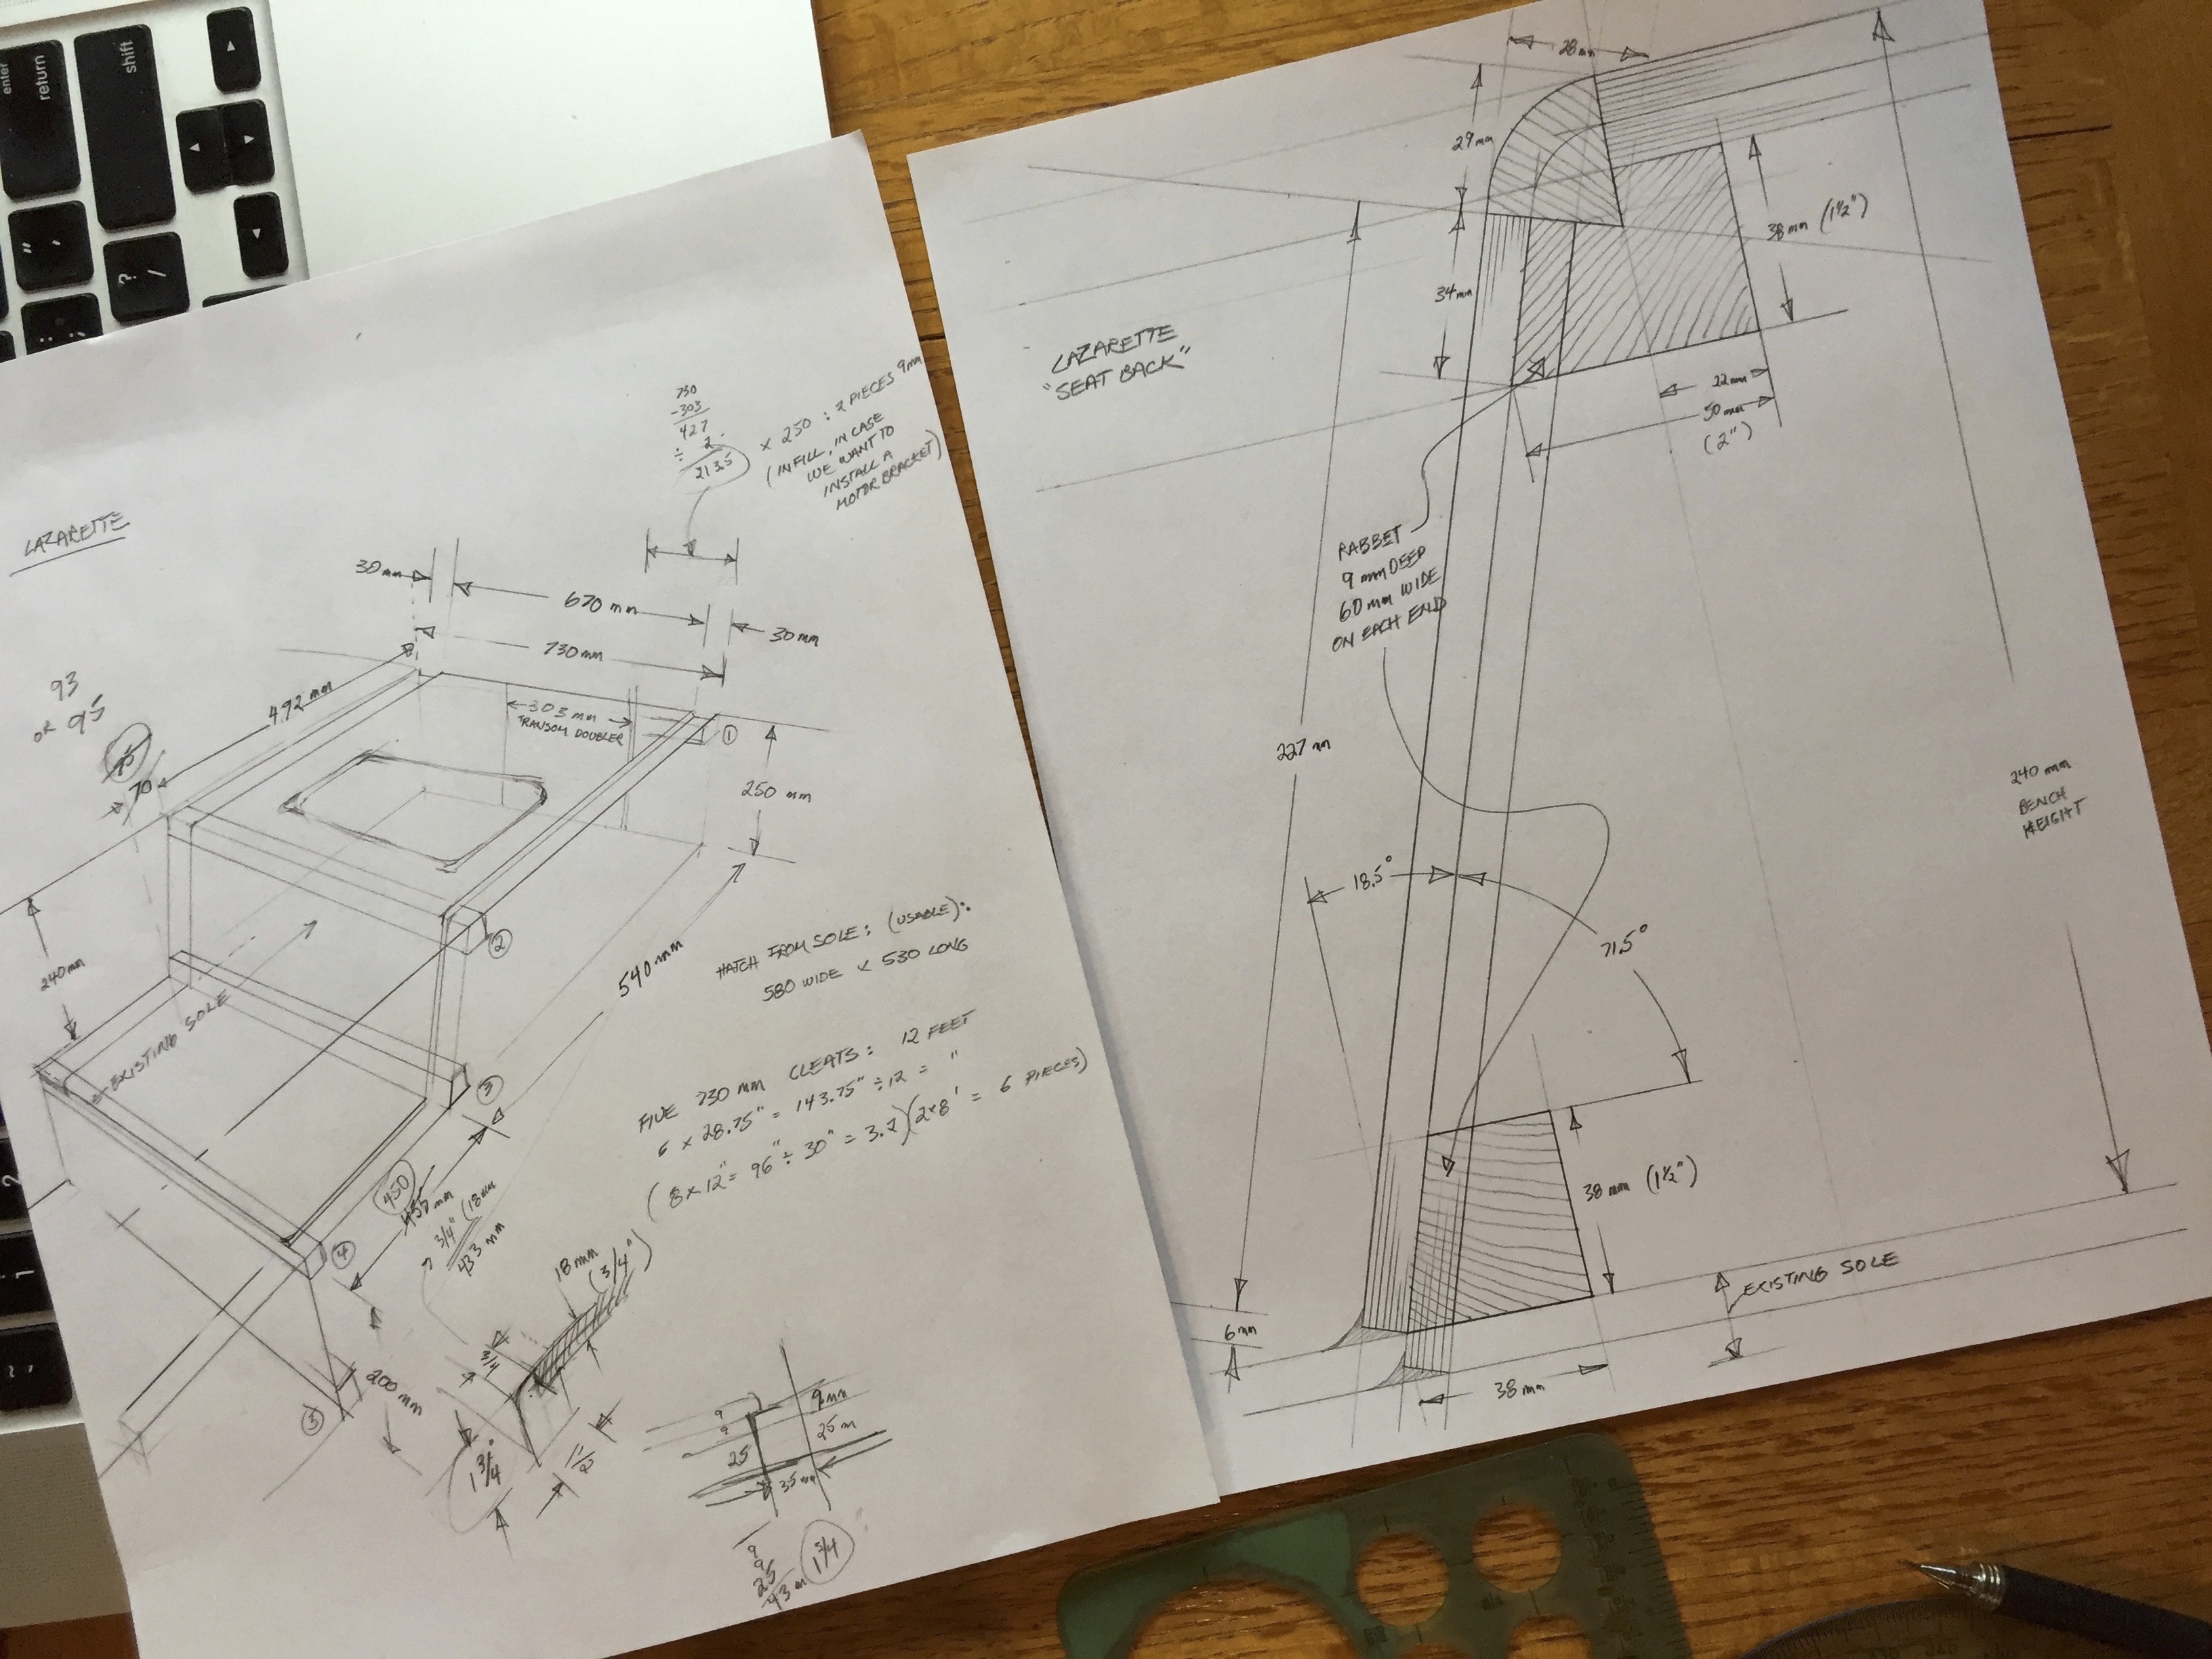 enter
return
shift
LAZARETTE
730
-303
427
÷ 2
213.5
× 250 : 2 PIECES 9mm
(INFILL, IN CASE
WE WANT TO
INSTALL A
MOTOR BRACKET)
30mm
670 mm
30mm
730mm
492 mm
93
OR 95
70
303 mm
TRANSOM DOUBLER
1
250 mm
2
240mm
EXISTING SOLE
540mm
HATCH FROM SOLE: (USABLE):
580 WIDE × 530 LONG
FIVE 730 mm CLEATS: 12 FEET
6 × 28.75" = 143.75" ÷ 12 = "
(8×12" = 96" ÷ 30" = 3.2)(2×8' = 6 PIECES)
3
450
3/4" (18mm
433 mm
4
18mm
(3/4")
3/4
200 mm
3
1 3/4"
1 1/2
9
9
25
9mm
25m
35mm
9
9
25
43m
1 3/4
LAZARETTE
"SEAT BACK"
28mm
29mm
34mm
38mm (1½")
22mm
50mm
(2")
RABBET
9 mm DEEP
60 mm WIDE
ON EACH END
227mm
240 mm
BENCH
HEIGHT
18.5°
71.5°
38 mm (1½")
EXISTING SOLE
6mm
38mm